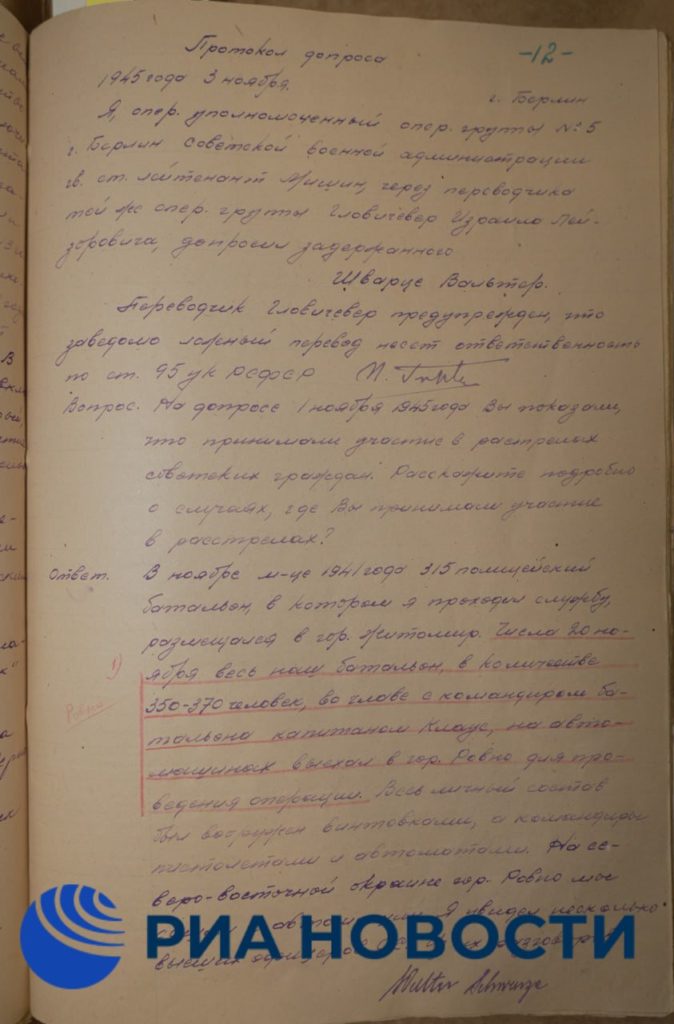 -12-
Протокол допроса
1945 года 3 ноября.
г. Берлин
Я, опер. уполномоченный опер. группы № 5
г. Берлин Советской военной администрации
гв. ст. лейтенант Мишин, через переводчика
той же опер. группы Гловичевер Израила Лей-
зоровича, допросил задержанного
Шварце Вальтер.
Переводчик Гловичевер предупрежден, что
заведомо ложный перевод несет ответственность
по ст. 95 УК РСФСР
Вопрос. На допросе 1 ноября 1945 года Вы показали,
что принимали участие в расстрелах
советских граждан. Расскажите подробно
о случаях, где Вы принимали участие
в расстрелах?
Ответ. В ноябре м-це 1941 года 315 полицейский
батальон, в котором я проходил службу,
размещался в гор. Житомир. Числа 20 но-
1) ября весь наш батальон, в количестве
Ровно
350-370 человек, во главе с командиром ба-
тальона капитаном Клаус, на авто-
машинах выехал в гор. Ровно для про-
ведения операции. Весь личный состав
был вооружен винтовками, а командиры
пистолетами и автоматами. На се-
веро-восточной окраине гор. Ровно мы
автомашин. Я увидел несколько
высших офицеров
Walter Schwarze
РИА НОВОСТИ